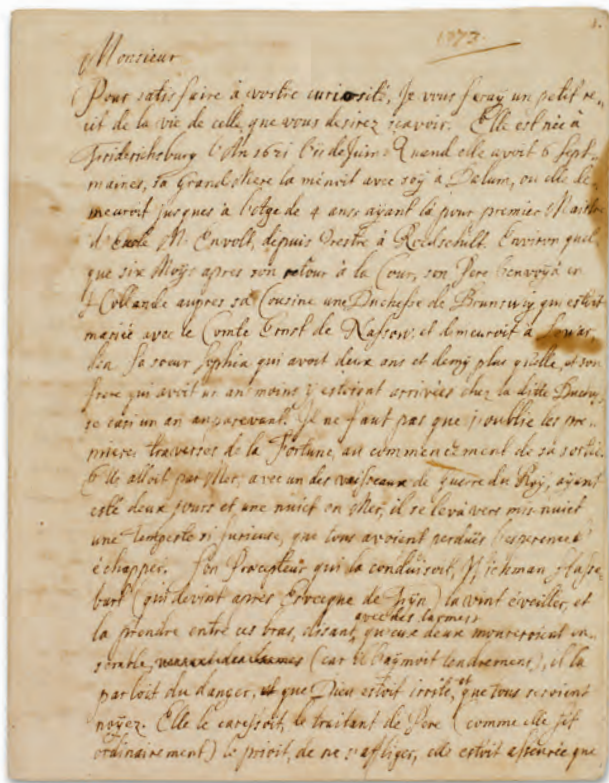 1.
1673.
Monsieur
Pour satisfaire à vostre curiosité, Je vous feray un petit re-
cit de la vie de celle que vous desirez scavoir. Elle est née à
Friderichsburg l'An 1621 de Juin. Quand elle avoit 6 sept-
maines, sa Grand Mere la menoit avec soy à Dalum, ou elle de-
meuroit jusques à l'aage de 4 ans; ayant là pour premier Maistre
d'Escole Mr Envolt, depuis Prestre à Roedschult. Environ quel-
que six Moÿs apres son retour à la Cour, son Pere l'envoÿa en
Hollande aupres sa Cousine une Duchesse de Brunswÿ, qui estoit
mariée avec le Comte Ernst de Nassow, et demeuroit à Lewar-
den. Sa soeur Sophia qui avoit deux ans et demÿ plus qu'elle, et son
frere qui avoit un an moins ÿ estoient arrivées chez la ditte Duches-
se casi un an auparavant. Je ne faut pas que j'oublie les pre-
mieres traverses de la Fortune, au commencement de sa sortie.
Elle alloit par Mer, avec un des vaisseaux de guerre du Roÿ, ayant
esté deux jours et une nuict en Mer, il se leva vers mis-nuict
une tempeste si furieuse, que tous avoient perduës l'esperence
échapper. Son Precepteur qui la conduisoit, Wichman Hasse-
bart (qui devint apres Evecque de Fÿn) la vint éveiller, et
la prendre entre ces bras, disant, avec des larmes qu'eux deux mourroient en-
semble, (car il l'aÿmoit tendrement), il la
parloit du danger, que Dieu estoit irrité, et que tous seroient
noÿez. Elle le caressoit, le traitant de Pere (comme elle fit
ordinairement) le prioit, de ne s'afliger, elle estoit assurée que